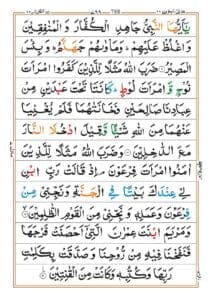 يٰۤاَيُّهَا النَّبِىُّ جَاهِدِ الْكُفَّارَ وَالْمُنٰفِقِيْنَ
وَاغْلُظْ عَلَيْهِمْ ؕ وَمَاْوٰىهُمْ جَهَنَّمُ ؕ وَبِئْسَ
الْمَصِيْرُ ضَرَبَ اللّٰهُ مَثَلًا لِّلَّذِيْنَ كَفَرُوا امْرَاَتَ
نُوْحٍ وَّامْرَاَتَ لُوْطٍ ؕ كَانَتَا
عَنْهُمَا مِنَ اللّٰهِ شَيْـًٔا وَّقِيْلَ ادْخُلَا النَّارَ
مَعَ الدّٰخِلِيْنَ وَضَرَبَ اللّٰهُ مَثَلًا لِّلَّذِيْنَ
اٰمَنُوا امْرَاَتَ فِرْعَوْنَ ۘ اِذْ قَالَتْ رَبِّ ابْنِ
لِىْ عِنْدَكَ بَيْتًا فِى الْجَنَّةِ وَنَجِّنِىْ مِنْ
فِرْعَوْنَ وَعَمَلِهٖ وَنَجِّنِىْ مِنَ الْقَوْمِ الظّٰلِمِيْنَ
وَمَرْيَمَ ابْنَتَ عِمْرٰنَ الَّتِىْۤ اَحْصَنَتْ فَرْجَهَا
فَنَفَخْنَا فِيْهِ مِنْ رُّوْحِنَا وَصَدَّقَتْ بِكَلِمٰتِ
رَبِّهَا وَكُتُبِهٖ وَكَانَتْ مِنَ الْقٰنِتِيْنَ